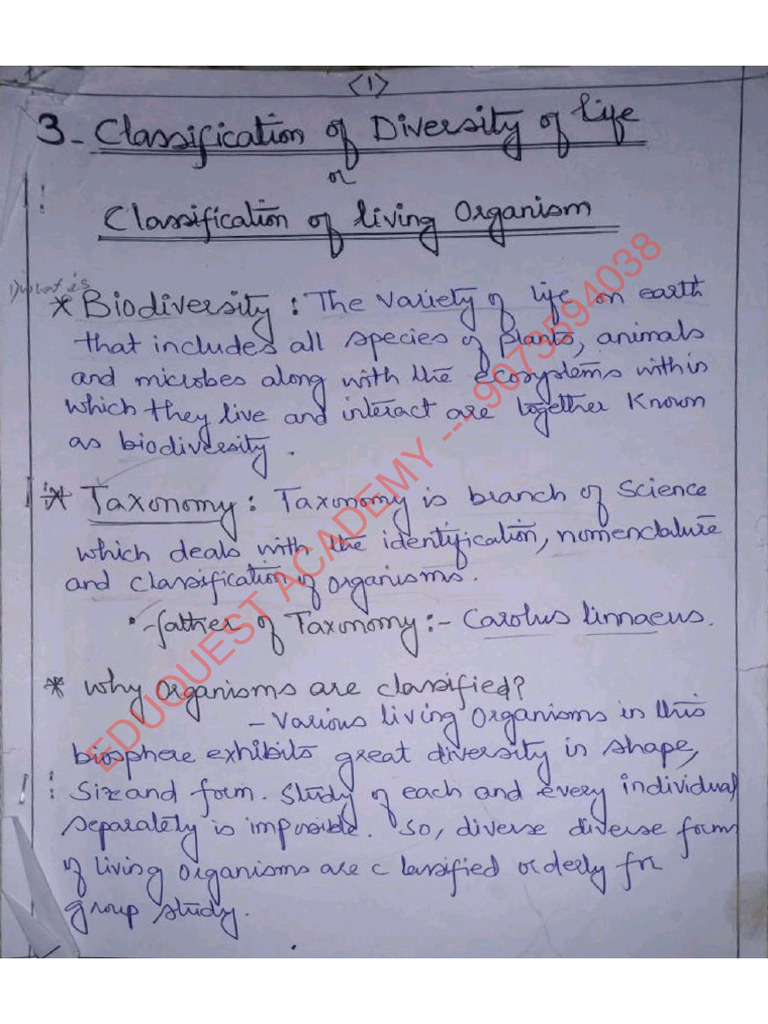 <1>
3- Classification of Diversity of life
or
Classification of living Organism
1) what is
* Biodiversity : The variety of life on earth
that includes all species of plants, animals
and microbes along with the ecosystems within
which they live and interact are together known
as biodiversity.
* Taxonomy : Taxonomy is branch of Science
which deals with the identification, nomenclature
and classification of organisms.
•-father of Taxonomy :- Carolus linnaeus.
* Why Organisms are classified?
- Various living Organisms in this
biosphere exhibits great diversity in shape,
Size and form. Study of each and every individual
separately is impossible. So, diverse diverse form
of living Organisms are c lassified orderly for
group study.
EDUQUEST ACADEMY ---- 9073594038